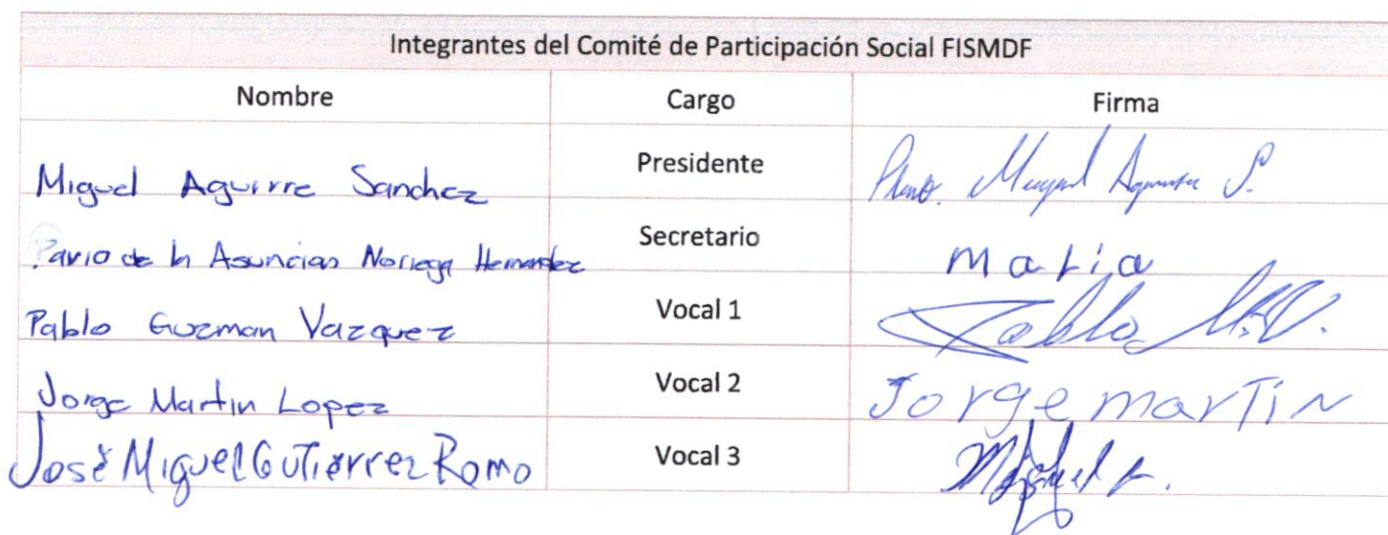 Integrantes del Comité de Participación Social FISMDF
Nombre Cargo Firma
Miguel Aguirre Sanchez Presidente Miguel Aguirre S.
de la Asuncion Noriega Hernandez Secretario Maria
Pablo Guzman Vazquez Vocal 1 Pablo
Jorge Martin Lopez Vocal 2 Jorge martin
José Miguel Gutiérrez Romo Vocal 3 Miguel